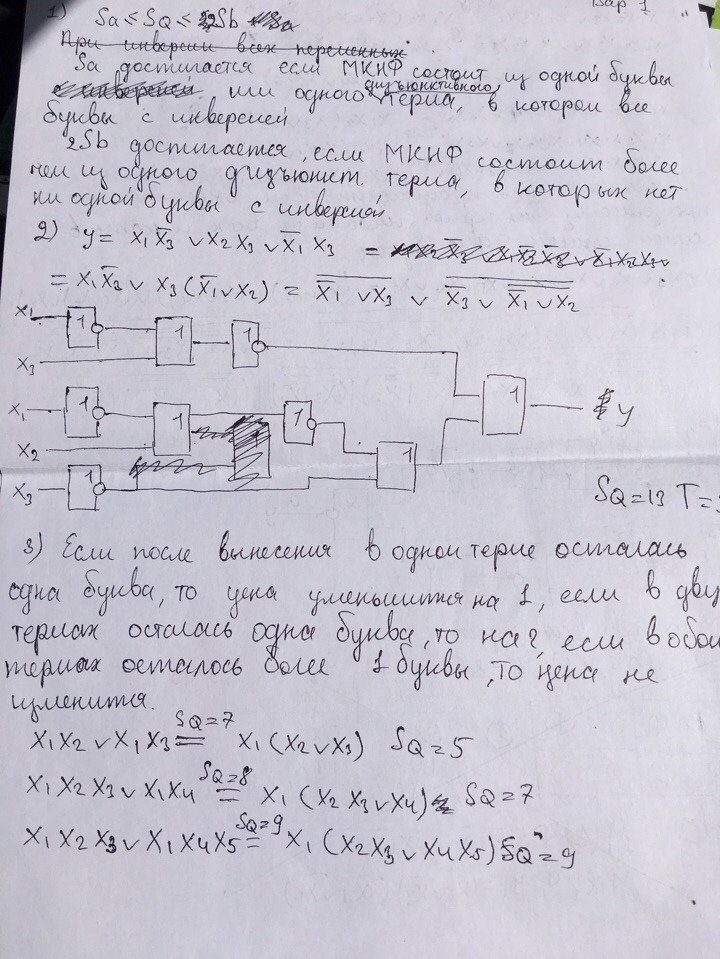 Вар 1
1) Sa ≤ SQ ≤ 2Sb
При инверсии всех переменных
Sa достигается если МКНФ состоит из одной буквы
или одного дизъюнктивного терма, в котором все
буквы с инверсией
2Sb достигается, если МКНФ состоит более
чем из одного дизъюнкт. терма, в которых нет
ни одной буквы с инверсией
2) y = x₁x̅₃ ∨ x₂x₃ ∨ x̅₁ x₃ =
= x₁x̅₃ ∨ x₃(x̅₁∨x₂) = \overline{\overline{x₁} ∨ x₃} ∨ \overline{\overline{x₃} ∨ \overline{\overline{x₁} ∨ x₂}}
x₁ 1 1 1
x₃
x₁ 1 1 1 1 y
x₂ 1
x₃ 1
SQ=13 T=
3) Если после вынесения в одной терме осталась
одна буква, то цена уменьшится на 1, если в дву
термах осталась одна буква, то на 2, если в обои
термах осталось более 1 буквы, то цена не
изменится.
x₁x₂ ∨ x₁x₃ SQ=7 = x₁(x₂∨x₃) SQ=5
x₁x₂x₃ ∨ x₁x₄ SQ=8 = x₁(x₂x₃∨x₄) SQ=7
x₁x₂x₃ ∨ x₁x₄x₅ SQ=9 = x₁(x₂x₃∨x₄x₅) SQ=9